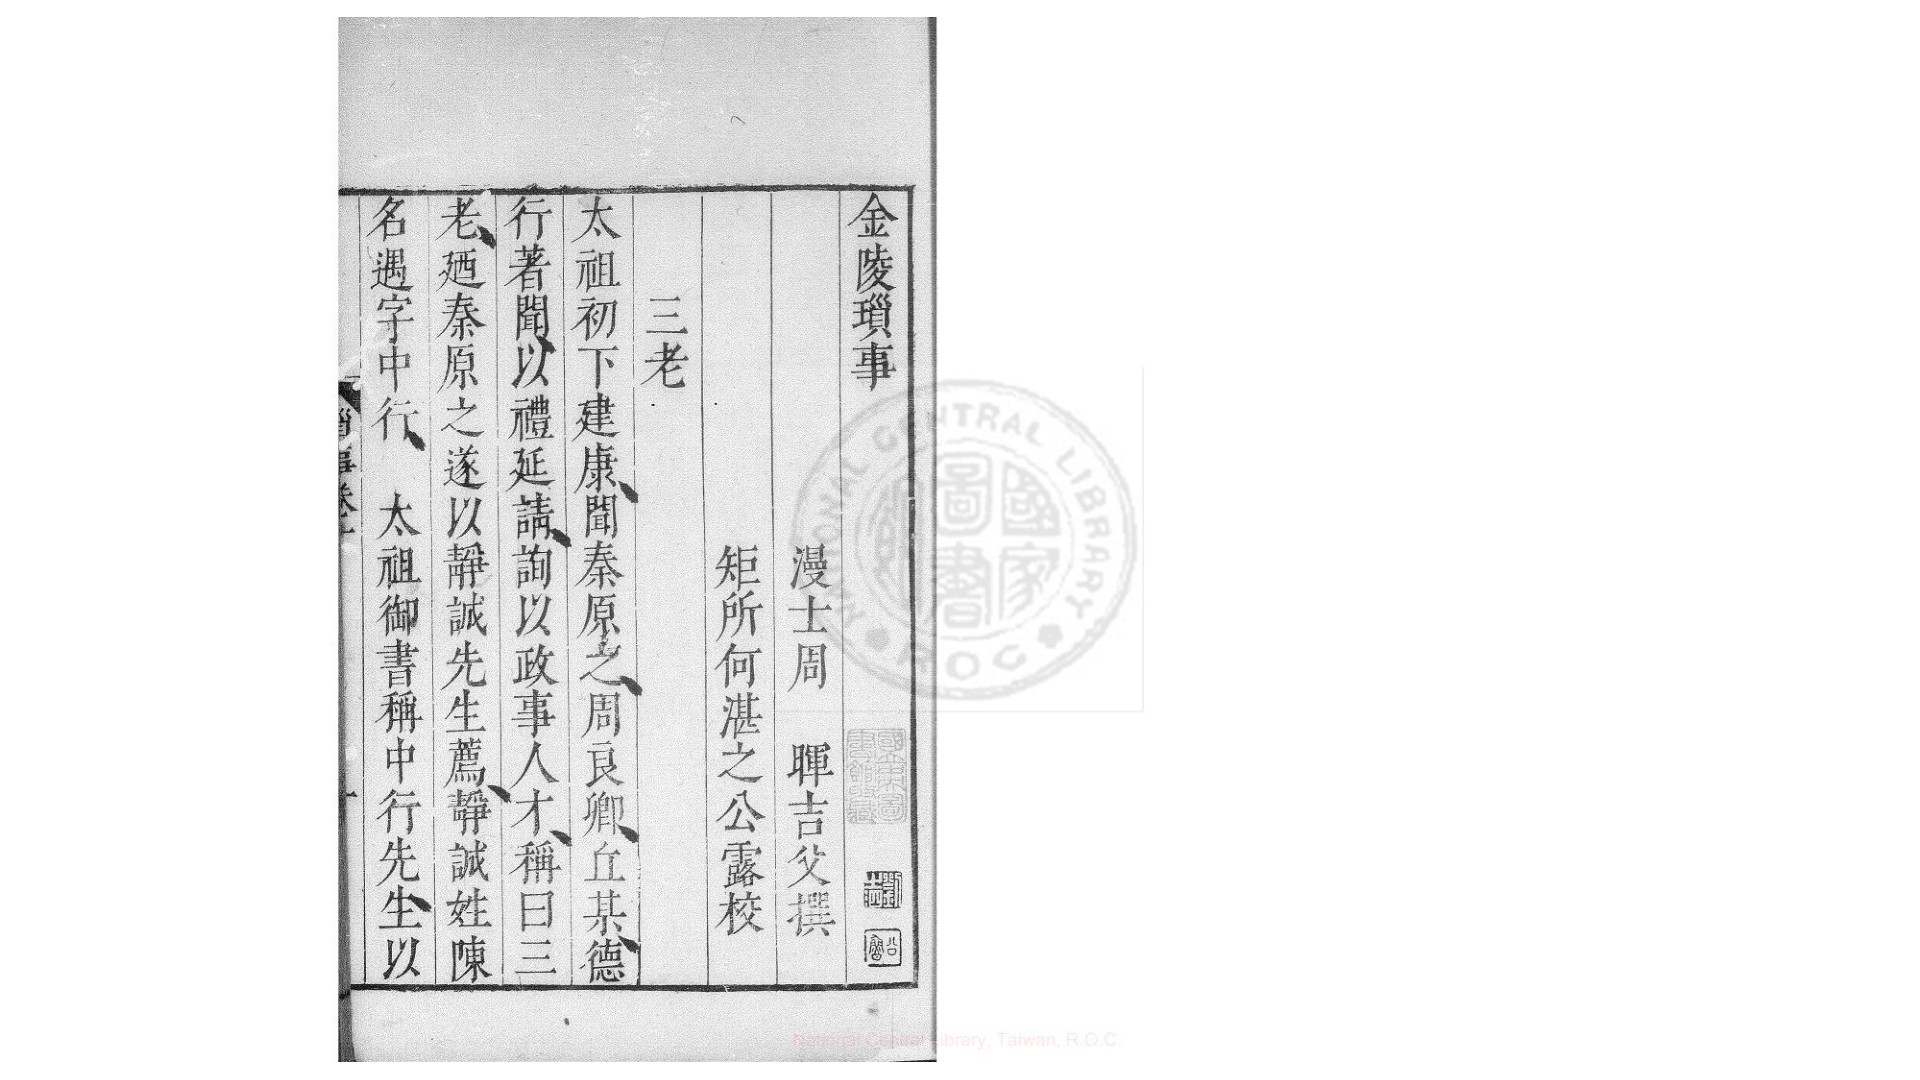 金陵瑣事
漫士周　暉吉父撰
矩所何湛之公露校
三老
太祖初下建康聞秦原之周良卿丘某德
行著聞以禮延請詢以政事人才稱曰三
老廼秦原之遂以靜誠先生薦靜誠姓陳
名遇字中行　太祖御書稱中行先生以
國家圖書館
NATIONAL CENTRAL LIBRARY
ROC
National Central Library, Taiwan, R.O.C.